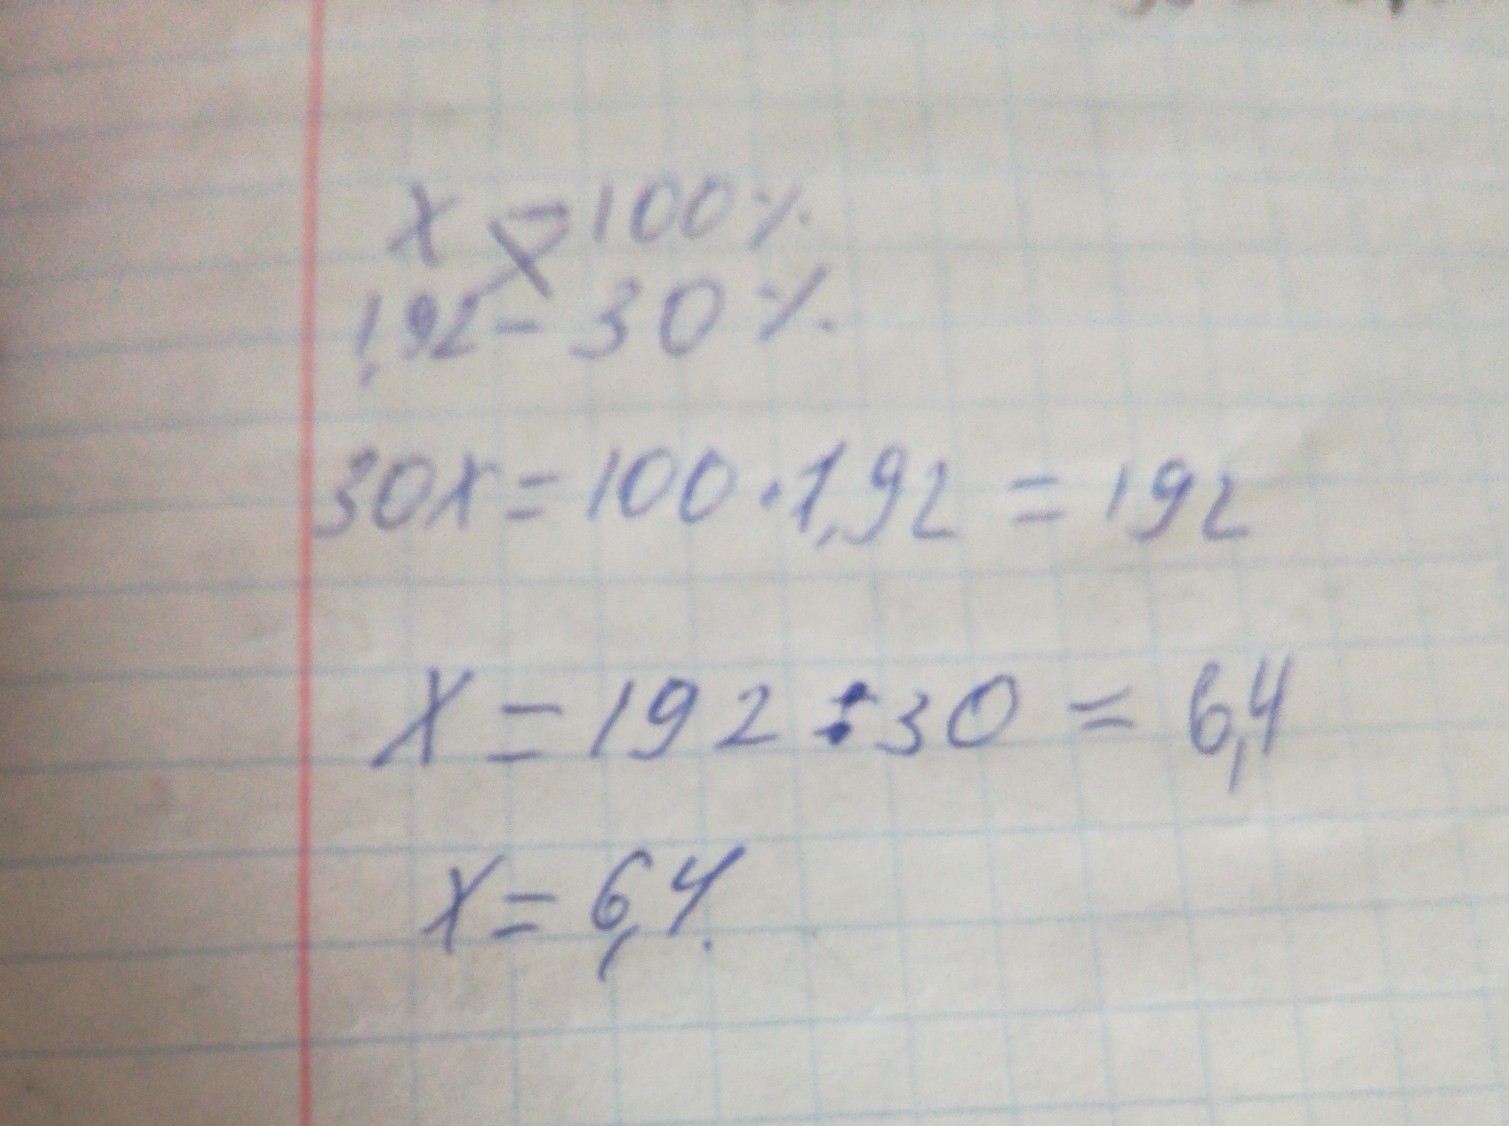 x – 100%
1,92 – 30%
30x = 100 · 1,92 = 192
x = 192 : 30 = 6,4
x = 6,4.